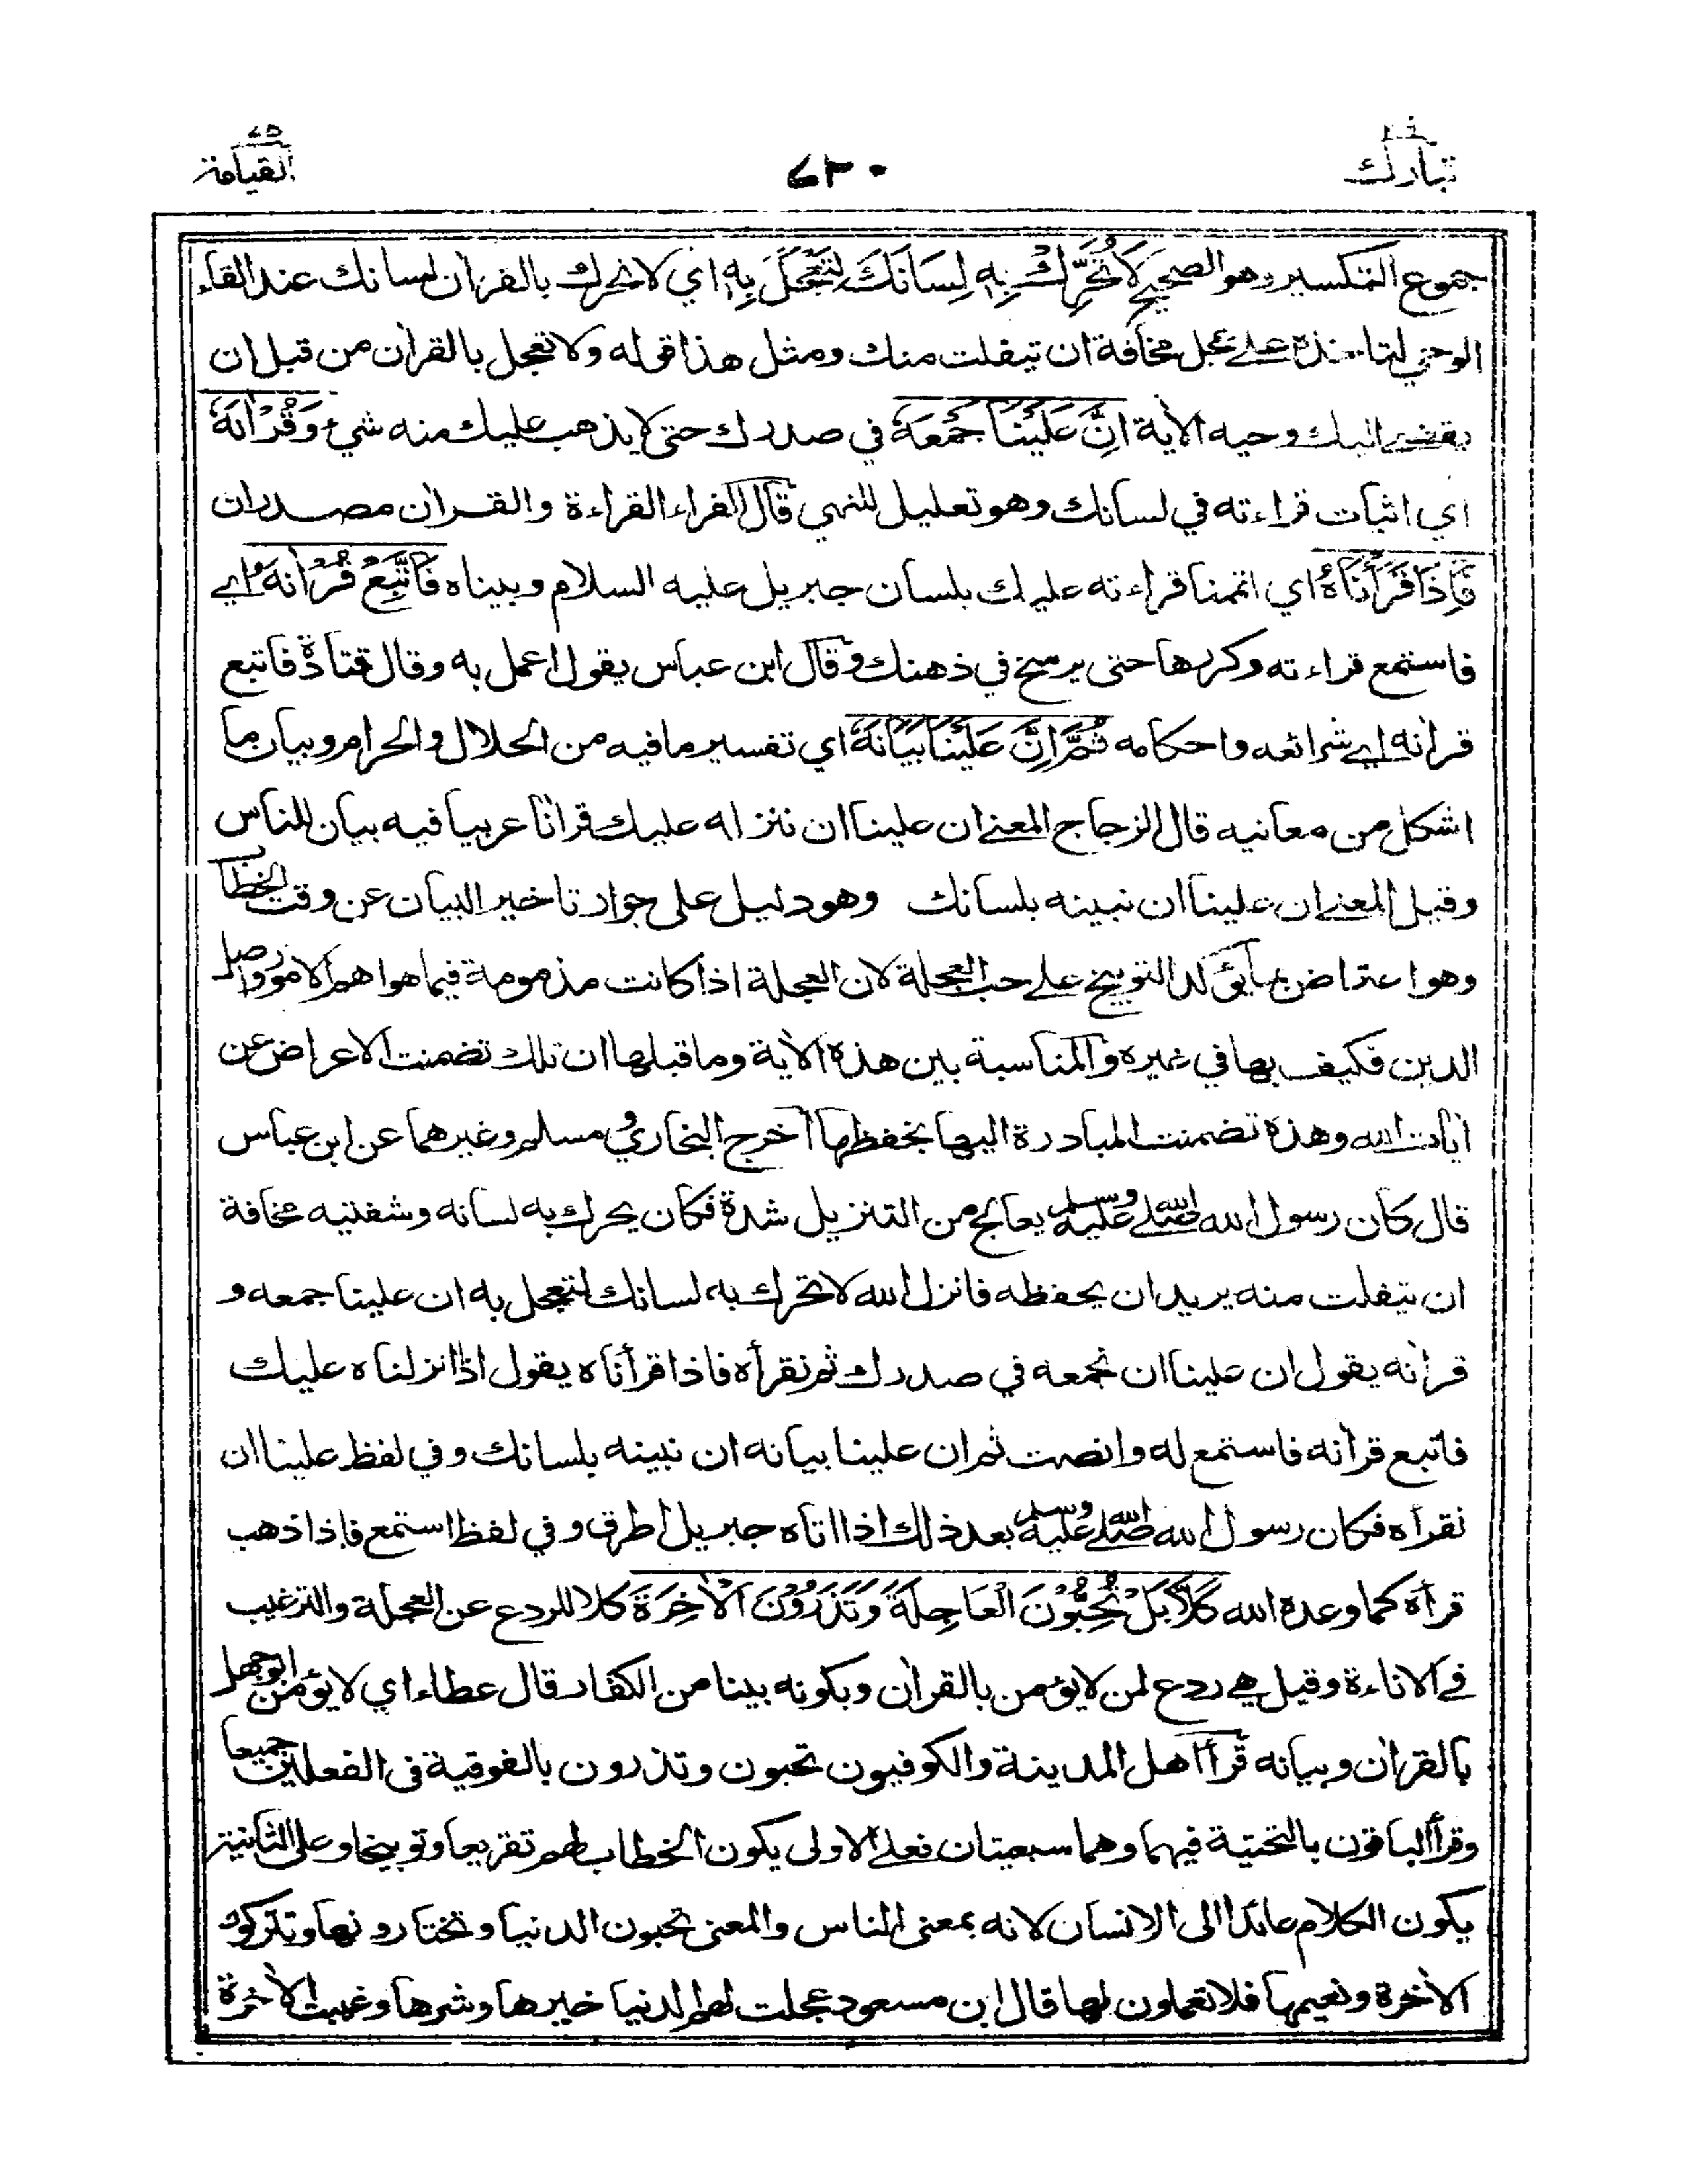 تبارك ٢٩
٧٣٠
القيامة ٧٥
جموع التكسير وهو الصحيح لَا تُحَرِّكْ بِهِ لِسَانَكَ لِتَعْجَلَ بِهِ اي لا تحرك بالقرآن لسانك عند القاء
الوحي لتاخذه على عجل مخافة ان يتفلت منك ومثل هذا قوله ولا تعجل بالقرآن من قبل ان
يقضى اليك وحيه الآية اِنَّ عَلَيْنَا جَمْعَهُ في صدرك حتى لا يذهب عليك منه شيء وَقُرْآنَهُ
اي اثبات قراءته في لسانك وهو تعليل للنهي قال الفراء القراءة والقرآن مصدران
فَاِذَا قَرَأْنَاهُ اي اتممنا قراءته عليك بلسان جبريل عليه السلام وبيناه فَاتَّبِعْ قُرْآنَهُ اي
فاستمع قراءته وكررها حتى يرسخ في ذهنك وقال ابن عباس يقول اعمل به وقال قتادة فاتبع
قرآنه اي شرائعه واحكامه ثُمَّ اِنَّ عَلَيْنَا بَيَانَهُ اي تفسير ما فيه من الحلال والحرام وبيان ما
اشكل من معانيه قال الزجاج المعنى ان علينا ان ننزله عليك قرآنا عربيا فيه بيان للناس
وقيل المعنى ان علينا ان نبينه بلسانك وهو دليل على جواز تاخير البيان عن وقت الخطاب
وهو اعتراض بما يؤكد التوبيخ على حب العجلة لان العجلة اذا كانت مذمومة فيما هو اهم الامور واصل
الدين فكيف بها في غيره والمناسبة بين هذه الآية وما قبلها ان تلك تضمنت الاعراض عن
آيات الله وهذه تضمنت المبادرة اليها بحفظها اخرج البخاري ومسلم وغيرهما عن ابن عباس
قال كان رسول الله صلى الله عليه وسلم يعالج من التنزيل شدة فكان يحرك به لسانه وشفتيه مخافة
ان يتفلت منه يريد ان يحفظه فانزل الله لا تحرك به لسانك لتعجل به ان علينا جمعه و
قرآنه يقول ان علينا ان نجمعه في صدرك ثم نقرأه فاذا قرأناه يقول اذا انزلناه عليك
فاتبع قرآنه فاستمع له وانصت ثم ان علينا بيانه ان نبينه بلسانك وفي لفظ علينا ان
نقرأه فكان رسول الله صلى الله عليه وسلم بعد ذلك اذا اتاه جبريل اطرق وفي لفظ استمع فاذا ذهب
قرأه كما وعده الله كَلَّا بَلْ تُحِبُّوْنَ الْعَاجِلَةَ وَتَذَرُوْنَ الْآخِرَةَ كلا للردع عن العجلة والترغيب
في الاناءة وقيل هي ردع لمن لا يؤمن بالقرآن وبكونه بينا من الكفار قال عطاء اي لا يؤمن ابو جهل
بالقرآن وبيانه قرأ اهل المدينة والكوفيون تحبون وتذرون بالفوقية في الفعلين جميعا
وقرأ الباقون بالتحتية فيهما وهما سبعيتان فعلى الاولى يكون الخطاب لهم تقريعا وتوبيخا وعلى الثانية
يكون الكلام عائدا الى الانسان لانه بمعنى الناس والمعنى تحبون الدنيا وتختارونها وتتركون
الآخرة ونعيمها فلا تعملون لها قال ابن مسعود عجلت لهم الدنيا خيرها وشرها وغيبت الآخرة